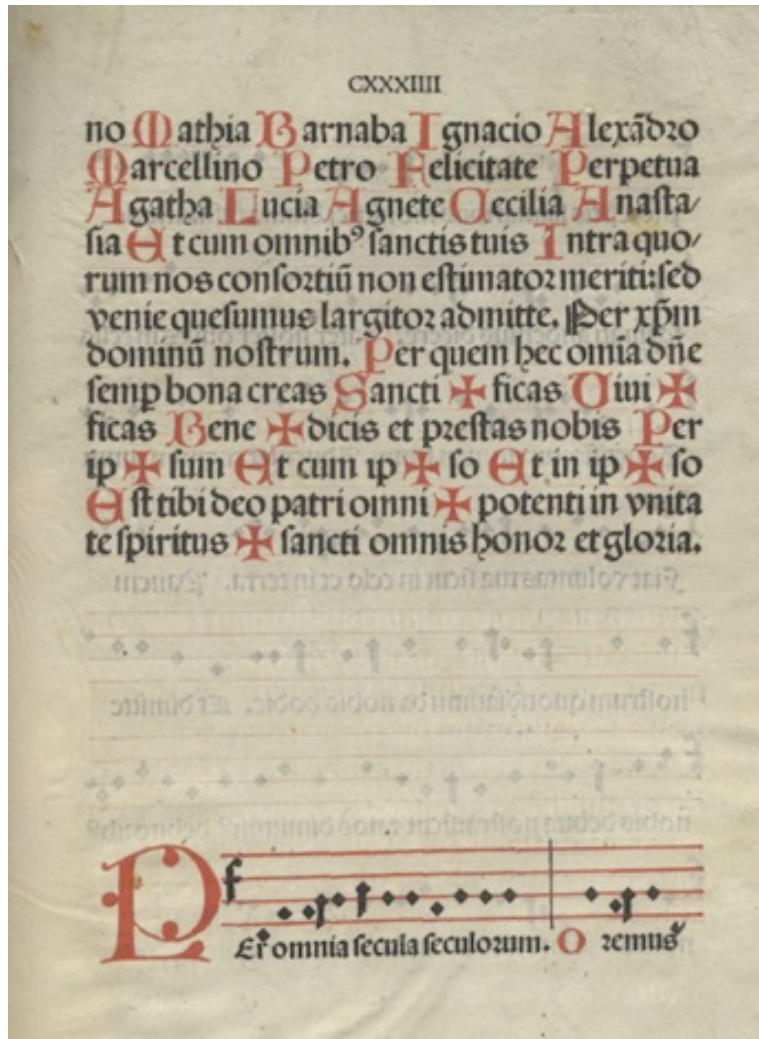 CXXXIIII
no Mathia Barnaba Ignacio Alexãdro
Marcellino Petro Felicitate Perpetua
Agatha Lucia Agnete Cecilia Anasta/
sia Et cum omnibꝰ sanctis tuis Intra quo/
rum nos consortiũ non estimator meriti: sed
venie quesumus largitor admitte. Per xp̃m
dominũ nostrum. Per quem hec omĩa dñe
semꝑ bona creas Sancti ✠ ficas Uiui ✠
ficas Bene ✠ dicis et prestas nobis Per
ip ✠ sum Et cum ip ✠ so Et in ip ✠ so
Est tibi deo patri omni ✠ potenti in vnita
te spiritus ✠ sancti omnis honor et gloria.
PEr omnia secula seculorum. Oremus